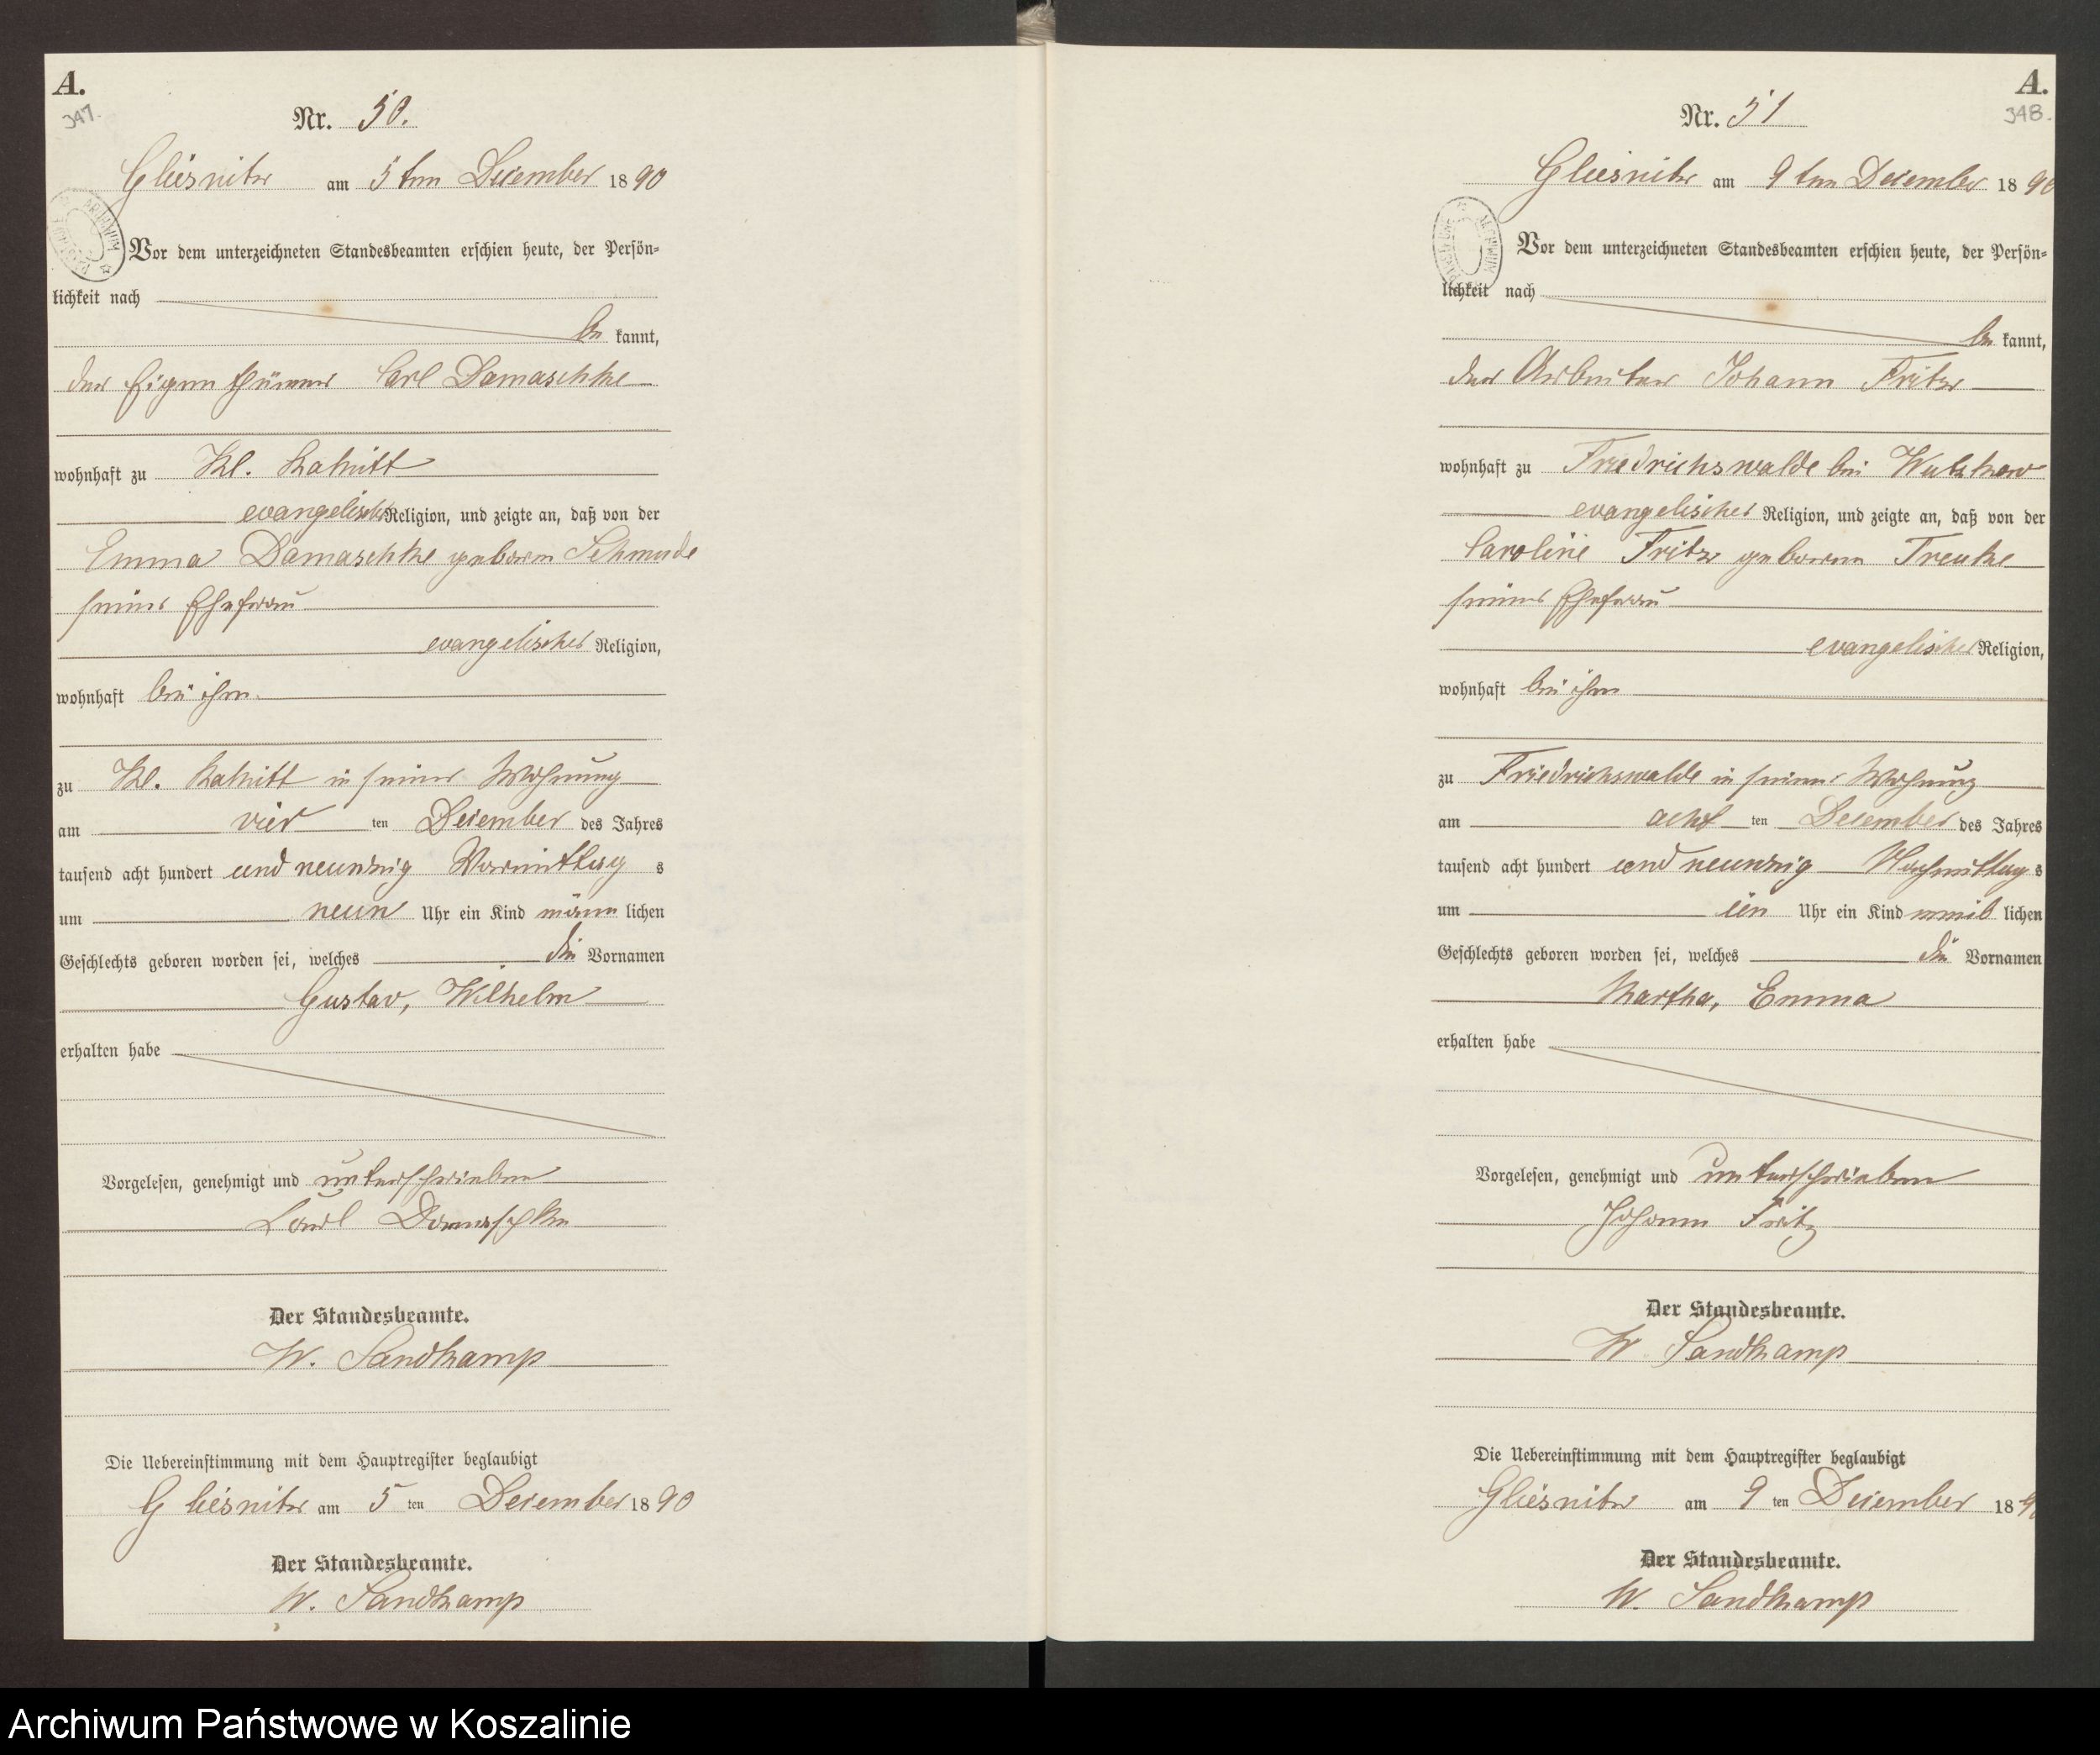 A.
347.
Nr. 50.
Gliesnitz am 5ten December 1890
Vor dem unterzeichneten Standesbeamten erschien heute, der Persön-
lichkeit nach
be kannt,
der Eigenthümer Carl Damaschke
wohnhaft zu Kl. Rakitt
evangelischer Religion, und zeigte an, daß von der
Emma Damaschke geboren Schmude
seiner Ehefrau
evangelischer Religion,
wohnhaft bei ihm
zu Kl. Rakitt in seiner Wohnung
am vier ten December des Jahres
tausend acht hundert und neunzig Vormittag s
um neun Uhr ein Kind männ lichen
Geschlechts geboren worden sei, welches die Vornamen
Gustav, Wilhelm
erhalten habe
Vorgelesen, genehmigt und unterschrieben
Carl Damaschke
Der Standesbeamte.
W. Sandkamp
Die Uebereinstimmung mit dem Hauptregister beglaubigt
Gliesnitz am 5 ten December 1890
Der Standesbeamte.
W. Sandkamp
A.
348.
Nr. 51
Gliesnitz am 9ten December 1890
ARCHIWUM
Vor dem unterzeichneten Standesbeamten erschien heute, der Persön-
lichkeit nach
be kannt,
der Arbeiter Johann Fritz
wohnhaft zu Friedrichswalde bei Wutzkow
evangelischer Religion, und zeigte an, daß von der
Caroline Fritz geboren Treuke
seiner Ehefrau
evangelischer Religion,
wohnhaft bei ihm
zu Friedrichswalde in seiner Wohnung
am acht ten December des Jahres
tausend acht hundert und neunzig Nachmittag s
um ein Uhr ein Kind weib lichen
Geschlechts geboren worden sei, welches die Vornamen
Martha, Emma
erhalten habe
Vorgelesen, genehmigt und unterschrieben
Johann Fritz
Der Standesbeamte.
W. Sandkamp
Die Uebereinstimmung mit dem Hauptregister beglaubigt
Gliesnitz am 9 ten December 189
Der Standesbeamte.
W. Sandkamp
Archiwum Państwowe w Koszalinie